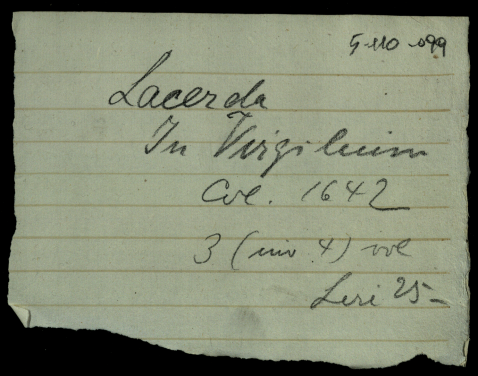 5-110-099
Lacerda
In Virgilium
Col. 1642
3 (in 4) vol
Leri 25-